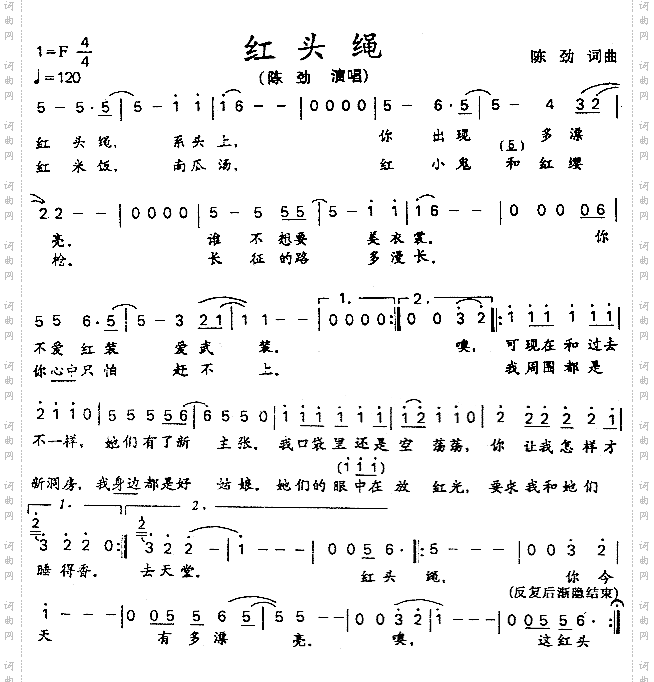 红头绳
1=F 4/4
♩=120
(陈劲 演唱)
陈劲 词曲
5 - 5·5 | 5 - 1 1 | 1 6 - - | 0 0 0 0 | 5 - 6·5 | 5 - 4 3 2
红头绳， 系头上， 你出现 多漂
红米饭， 南瓜汤， 红小鬼 和红缨
2 2 - - | 0 0 0 0 | 5 - 5 5 5 | 5 - 1 1 | 1 6 - - | 0 0 0 0 6
亮。 谁不想要 美衣裳。 你
枪。 长征的路 多漫长。
5 5 6·5 | 5 - 3 2 1 | 1 1 - - | 0 0 0 0 :| 0 0 3 2 |: 1 1 1 1 1 1
1. 2.
不爱红装 爱武装。 噢，可现在和过去
你心中只怕 赶不上。 我周围都是
2 1 1 0 | 5 5 5 5 5 6 | 6 5 5 0 | 1 1 1 1 1 1 1 | 1 2 1 1 0 | 1 1 1 1 1 1
不一样，她们有了新 主张。我口袋里还是空 荡荡，你 让我怎样才
(1 1 1)
新洞房，我身边都是好 姑娘。她们的眼中在放 红光，要求我和她们
1. 2.
3 2 2 0 :| 3 2 2 - | 2 - - - | 1 - - - | 0 0 5 6· |: 5 - - - | 0 0 3 2
睡得香。 去天堂。 红头 绳， 你今
(反复后渐隐结束)
1 - - - | 0 0 5 5 5 6 | 5 2 2 - | 0 0 3 2 | 1 - - - | 0 0 5 5 5 6 :|
天 有多漂 亮。 噢， 这红头
词曲网